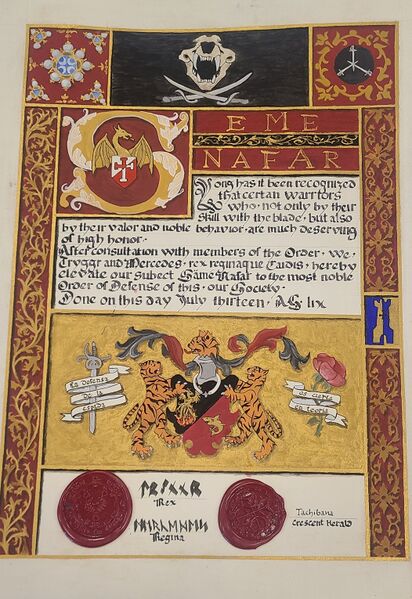 S EME
NAFAR
Long has it been recognized
that certan warriors
who · not only by their
skill with the blade · but also
by their valor and noble behavior · are much deserving
of high honor ·
After consultation with members of the Order · We ·
Tryggr and Mercedes · rex reginaque Caidis · hereby
elevate our subject to the most noble
Order of Defense of this · our Society ·
Done on this day July thirteen · AS lix
La defensa
de la
es cierta
en teoria
Rex
Regina
Tachibana
Crescent Herald